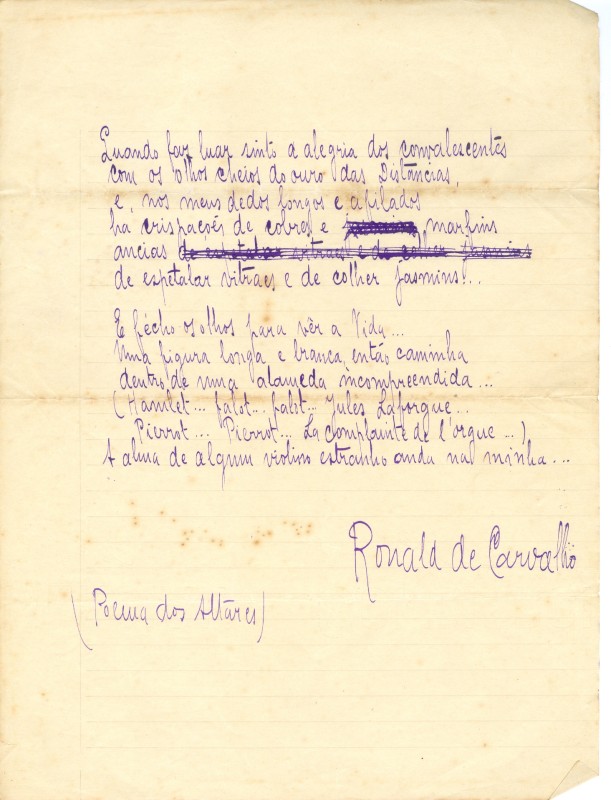 Quando faz luar sinto a alegria dos convalescentes
com os olhos cheios do ouro das Distancias,
e, nos meus dedos longos e afilados
ha crispações de cobre e marfins
ancias de espetalar vitraes e de colher jasmins
de espetalar vitraes e de colher Jasmins!..
E fécho os olhos para vêr a Vida...
Uma figura longa e branca, então caminha
dentro de uma alameda incompreendida...
(Hamlet... falot... falot... Jules Laforgue...
Pierrot... Pierrot... La complainte de l'orgue...)
A alma de algum violino estranho anda na minha...
Ronald de Carvalho
(Poema dos Altares)